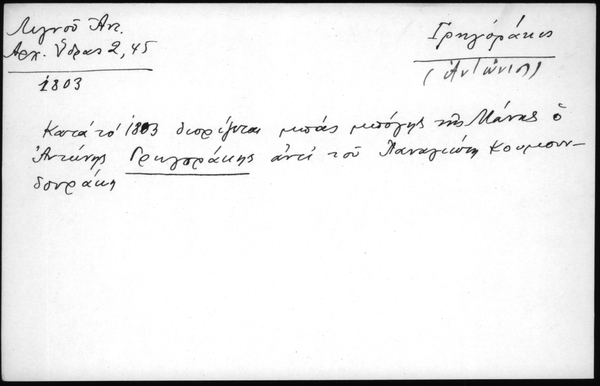 Λιγνοῦ Ἀντ.
Ἀρχ. Ὕδρας 2, 45
1803
Γρηγοράκης
(Ἀντώνιος)
Κατά τό 1803 διορίζεται μπάς μπόγης τῆς Μάνης ὁ
Ἀντώνης Γρηγοράκης ἀντί τοῦ Παναγιώτη Κουμουν-
δουράκη